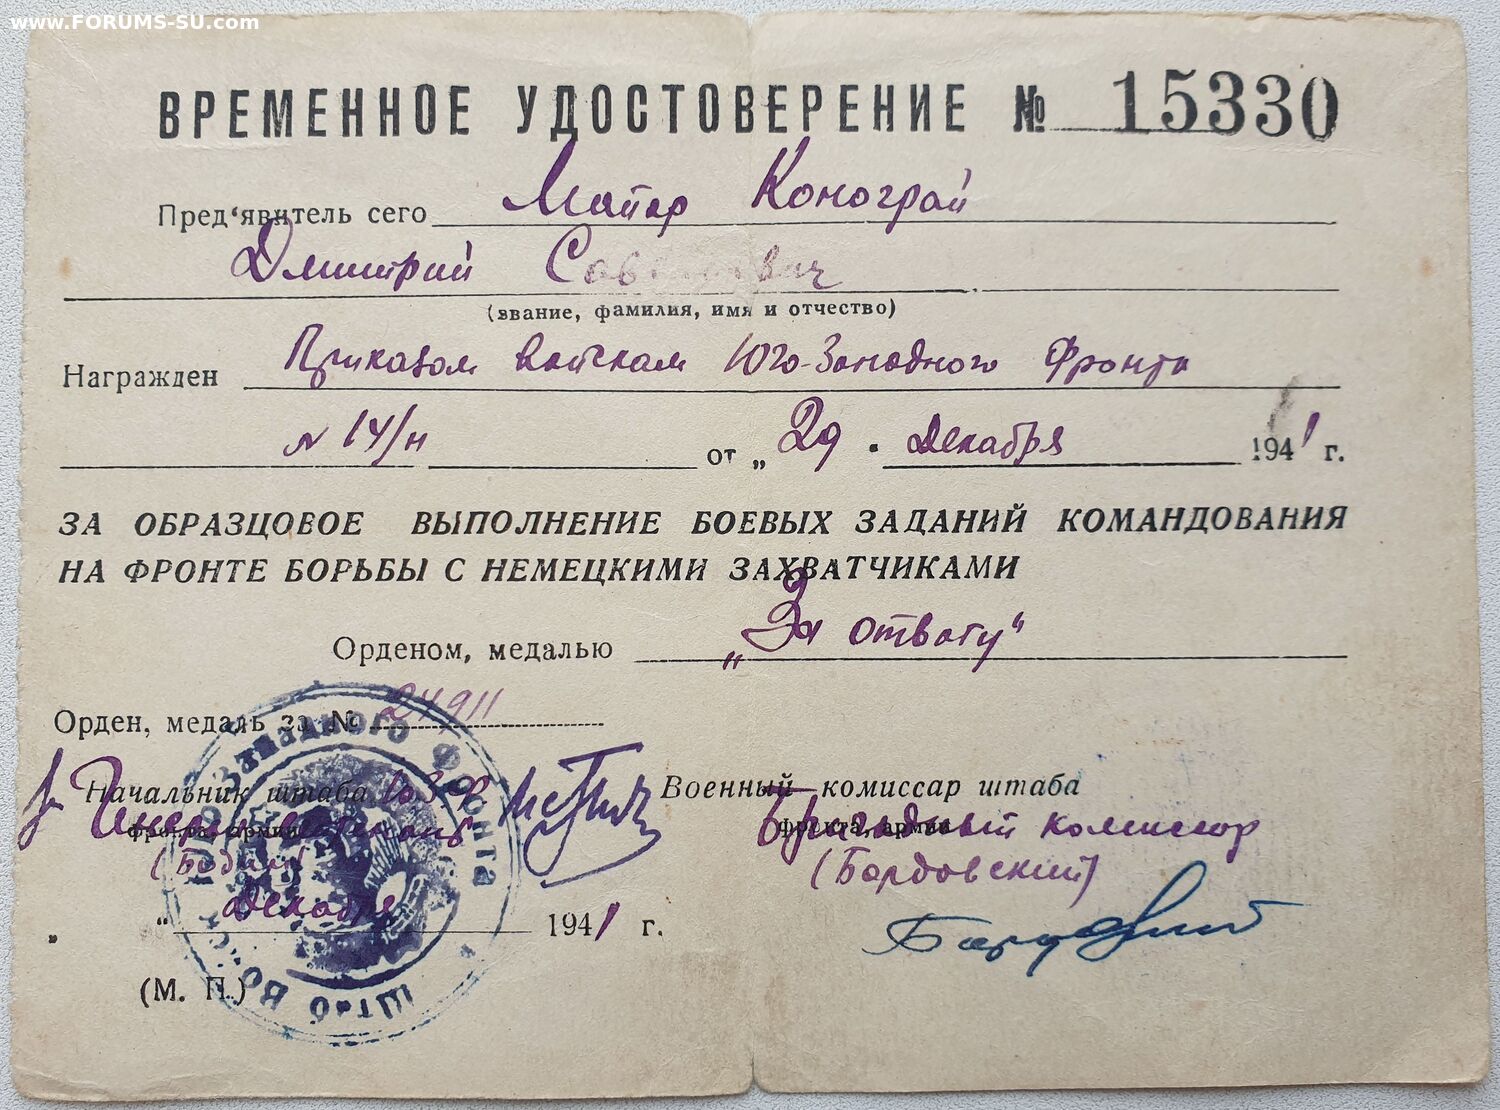 www.FORUMS-SU.com
ВРЕМЕННОЕ УДОСТОВЕРЕНИЕ № 15330
Пред‘явитель сего Майор Конограй
Дмитрий
(звание, фамилия, имя и отчество)
Награжден Приказом войскам Юго-Западного Фронта
№ 14/н от „29. Декабря 1941 г.
ЗА ОБРАЗЦОВОЕ ВЫПОЛНЕНИЕ БОЕВЫХ ЗАДАНИЙ КОМАНДОВАНИЯ
НА ФРОНТЕ БОРЬБЫ С НЕМЕЦКИМИ ЗАХВАТЧИКАМИ
Орденом, медалью „За отвагу“
Орден, медаль за № 24911
Начальник штаба ЮЗФ Военный комиссар штаба
фронта, армии фронта, армии
Бригадный комиссар
(Бодин) (Бордовский)
„ “ Декабря 1941 г.
(М. П.)
Штаб Юго-Западного Фронта